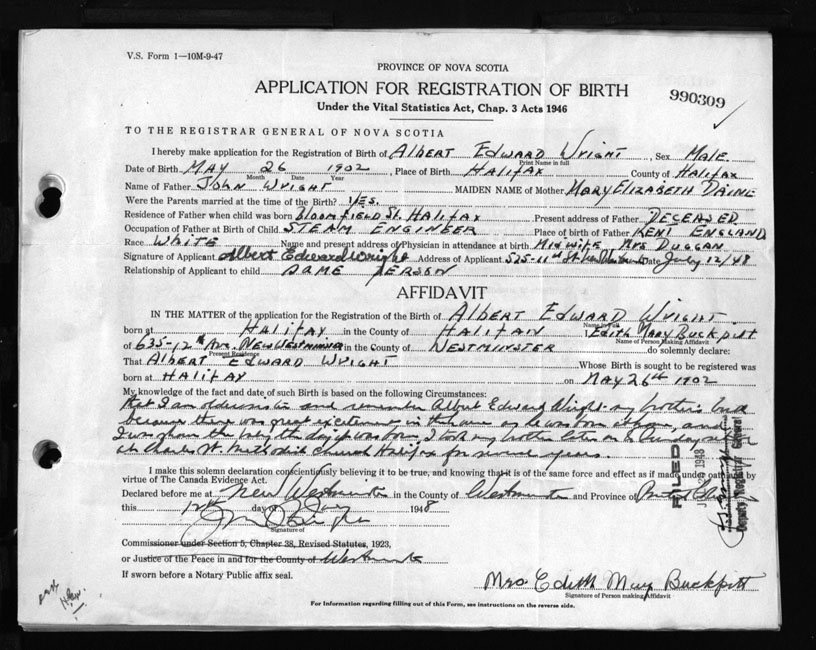 V.S. Form 1—10M-9-47
PROVINCE OF NOVA SCOTIA
APPLICATION FOR REGISTRATION OF BIRTH
990309
Under the Vital Statistics Act, Chap. 3 Acts 1946
TO THE REGISTRAR GENERAL OF NOVA SCOTIA
I hereby make application for the Registration of Birth of Albert Edward Wright, Sex Male.
Print Name in full
Date of Birth May 26 1902, Place of Birth Halifax County of Halifax
Month Date Year
Name of Father John Wright MAIDEN NAME of Mother Mary Elizabeth Daine
Were the Parents married at the time of the Birth? Yes.
Residence of Father when child was born Bloomfield St. Halifax Present address of Father Deceased
Occupation of Father at Birth of Child Steam Engineer Place of birth of Father Kent England
Race White Name and present address of Physician in attendance at birth Midwife Mrs Duggan
Signature of Applicant Albert Edward Wright Address of Applicant 525-11th St. Date July 12/48
Relationship of Applicant to child Same Person
AFFIDAVIT
IN THE MATTER of the application for the Registration of the Birth of Albert Edward Wright
Name in Full
born at Halifax in the County of Halifax I Edith Mary Buckpitt
Name of Person Making Affidavit
of 635-12th Ave. New Westminster in the County of Westminster do solemnly declare:
Present Residence
That Albert Edward Wright Whose Birth is sought to be registered
born at Halifax on May 26th 1902
My knowledge of the fact and date of such Birth is based on the following Circumstances:
that I am older sister and remember Albert Edward Wright my brother's birth
because there was great excitement in the house as he was born, and
I was given the day he was born, I took my brother later on to Sunday school
at Charles St. Methodist Church Halifax for several years.
I make this solemn declaration conscientiously believing it to be true, and knowing that it is of the same force and effect as if made under oath by
virtue of The Canada Evidence Act.
Declared before me at New Westminster in the County of Westminster and Province of British Columbia
this 12th day of July 1948
Signature of
Commissioner under Section 5, Chapter 38, Revised Statutes, 1923,
or Justice of the Peace in and for the County of Westminster
If sworn before a Notary Public affix seal.
Mrs Edith Mary Buckpitt
Signature of Person making Affidavit
For Information regarding filling out of this Form, see instructions on the reverse side.
FILED
1948
Deputy Registrar General